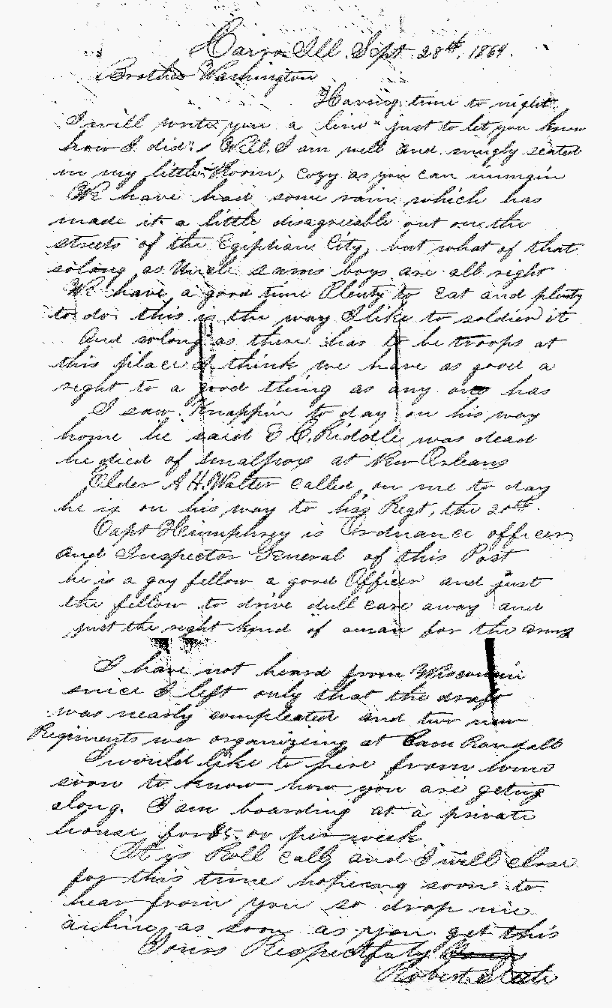 Cairo Ill. Sept 28th, 1864.
Brother Washington
Having time to night
I will write you a line just to let you know
how I did. Well. I am well and snugly seated
in my little Room, cozy as you can immagin
We have had some rain which has
made it a little disagreeable out on the
streets of the Egiptian City, but what of that
solong as Uncle sams boys are all right
We have a good time Plenty to Eat and plenty
to do this is the way I like to soldier it
And solong as there has to be troops at
this place I think we have as good a
right to a good thing as any one has
I saw Knappin to day on his way
home he said E C. Riddle was dead
he died of smalpox at New Orleans
Elder A H. Walter called on me to day
he is on his way to his Regt, the 20th.
Capt Humphrey is Ordnance officer
and Inspector General of this Post
he is a gay fellow a good Officer and just
the fellow to drive dull care away and
just the right kind of a man for the army
I have not heard from Wisconsin
since I left only that the draft
was nearly compleated and two new
Regiments was organizing at Cam Randall
I would like to here from
soon to know how you are geting
along. I am boarding at a private
house for per week
It is Roll call and I will close
for this time hopeing soon to
hear from you so drop me
a line as soon as you get this
Yours Respectfuly
Robert Steele